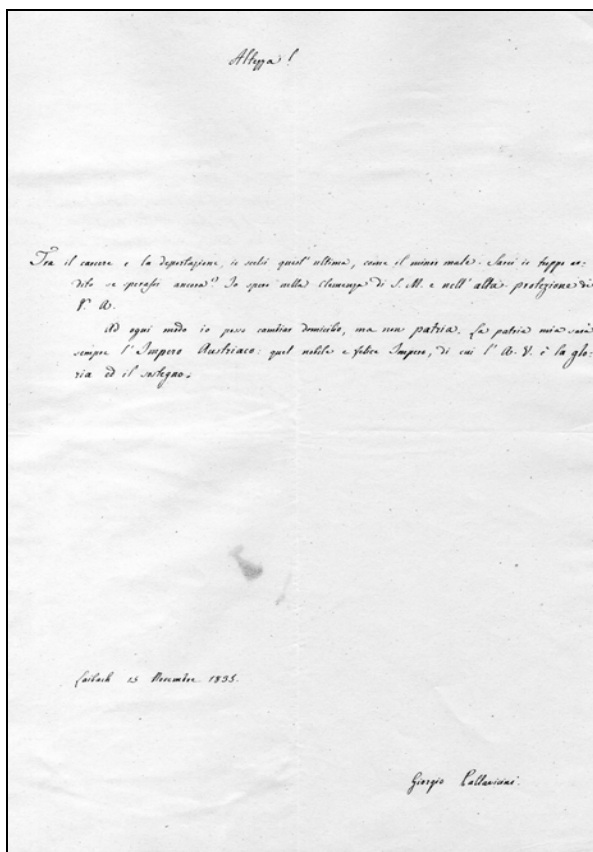 Altezza!
Tra il carcere e la deportazione, io scelsi quest' ultima, come il minor male. Sarei io troppo ar-
dito se sperassi ancora? Io spero nella Clemenza di S. M. e nell' alta protezione di
V. A.
Ad ogni modo io posso cambiar domicilio, ma non patria. La patria mia sarà
sempre l' Impero Austriaco: quel nobile e felice Impero, di cui l' A. V. è la glo-
ria ed il sostegno.
Laibach 15 Novembre 1835.
Giorgio Pallavicini.